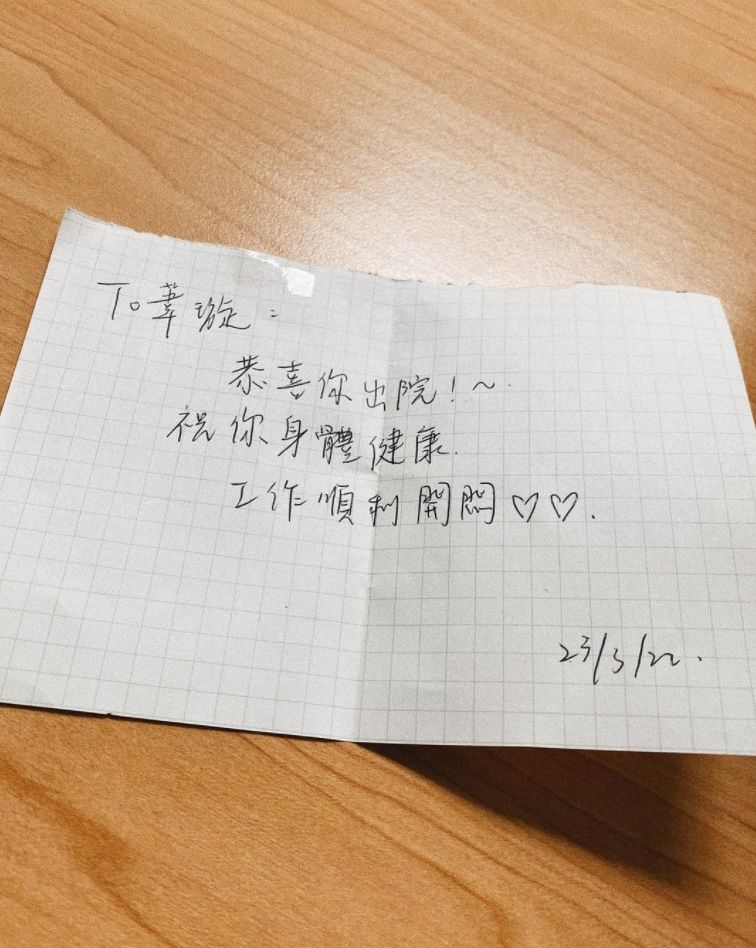 To 葦璇：
恭喜你出院！～.
祝你身體健康.
工作順利開悶♡♡.
23/3/22.